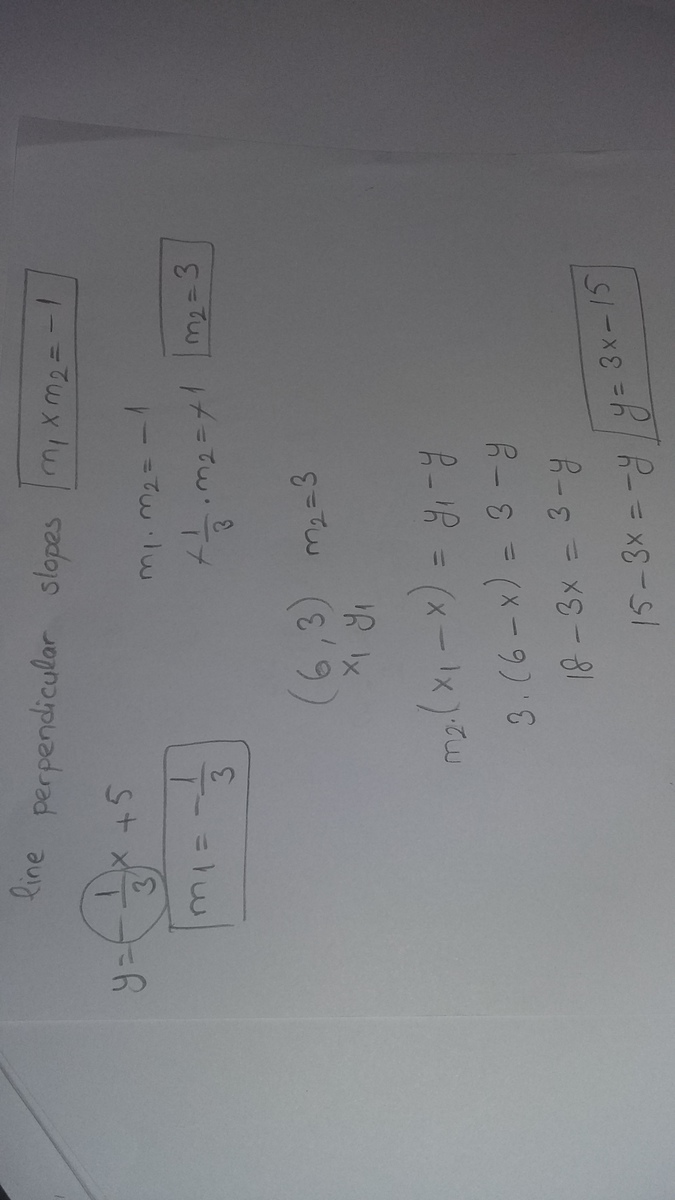 line perpendicular slopes m₁ x m₂ = -1
y = -1/3 x + 5
m₁ = -1/3
m₁ . m₂ = -1
-1/3 . m₂ = -1 m₂ = 3
(6, 3) m₂ = 3
x₁ y₁
m₂.(x₁ - x) = y₁ - y
3.(6 - x) = 3 - y
18 - 3x = 3 - y
15 - 3x = -y y = 3x - 15